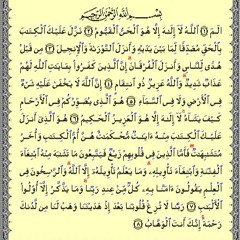 بِسْمِ اللَّهِ الرَّحْمَٰنِ الرَّحِيمِ
الٓمٓ ١ ٱللَّهُ لَآ إِلَٰهَ إِلَّا هُوَ ٱلْحَىُّ ٱلْقَيُّومُ ٢ نَزَّلَ عَلَيْكَ ٱلْكِتَٰبَ
بِٱلْحَقِّ مُصَدِّقًا لِّمَا بَيْنَ يَدَيْهِ وَأَنزَلَ ٱلتَّوْرَىٰةَ وَٱلْإِنجِيلَ ٣ مِن قَبْلُ
هُدًى لِّلنَّاسِ وَأَنزَلَ ٱلْفُرْقَانَ إِنَّ ٱلَّذِينَ كَفَرُوا۟ بِـَٔايَٰتِ ٱللَّهِ لَهُمْ
عَذَابٌ شَدِيدٌ وَٱللَّهُ عَزِيزٌ ذُو ٱنتِقَامٍ ٤ إِنَّ ٱللَّهَ لَا يَخْفَىٰ عَلَيْهِ شَىْءٌ
فِى ٱلْأَرْضِ وَلَا فِى ٱلسَّمَآءِ ٥ هُوَ ٱلَّذِى يُصَوِّرُكُمْ فِى ٱلْأَرْحَامِ
كَيْفَ يَشَآءُ لَآ إِلَٰهَ إِلَّا هُوَ ٱلْعَزِيزُ ٱلْحَكِيمُ ٦ هُوَ ٱلَّذِىٓ أَنزَلَ
عَلَيْكَ ٱلْكِتَٰبَ مِنْهُ ءَايَٰتٌ مُّحْكَمَٰتٌ هُنَّ أُمُّ ٱلْكِتَٰبِ وَأُخَرُ
مُتَشَٰبِهَٰتٌ فَأَمَّا ٱلَّذِينَ فِى قُلُوبِهِمْ زَيْغٌ فَيَتَّبِعُونَ مَا تَشَٰبَهَ مِنْهُ ٱبْتِغَآءَ
ٱلْفِتْنَةِ وَٱبْتِغَآءَ تَأْوِيلِهِۦ وَمَا يَعْلَمُ تَأْوِيلَهُۥٓ إِلَّا ٱللَّهُ وَٱلرَّٰسِخُونَ فِى
ٱلْعِلْمِ يَقُولُونَ ءَامَنَّا بِهِۦ كُلٌّ مِّنْ عِندِ رَبِّنَا وَمَا يَذَّكَّرُ إِلَّآ أُو۟لُوا۟
ٱلْأَلْبَٰبِ ٧ رَبَّنَا لَا تُزِغْ قُلُوبَنَا بَعْدَ إِذْ هَدَيْتَنَا وَهَبْ لَنَا مِن لَّدُنكَ
رَحْمَةً إِنَّكَ أَنتَ ٱلْوَهَّابُ ٨